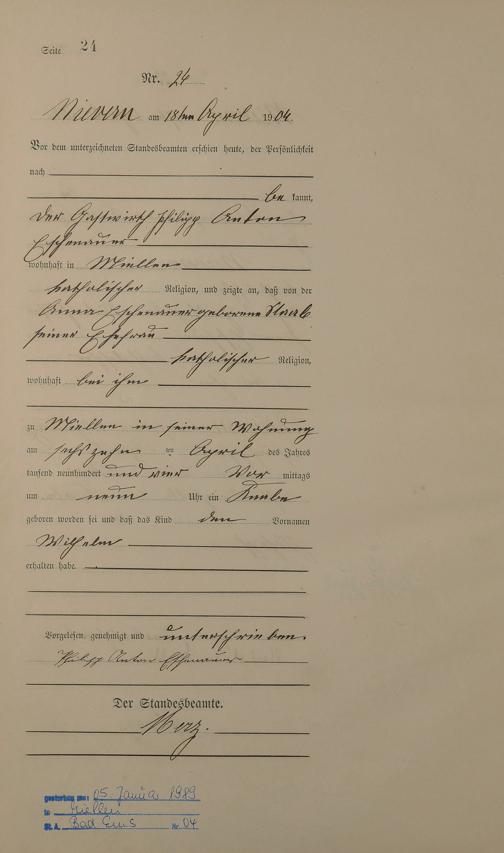 Seite 24
Nr. 24
Nievern am 18ten April 1904
Vor dem unterzeichneten Standesbeamten erschien heute, der Persönlichkeit
nach
be kannt,
der Gastwirth Philipp Anton
Eschenauer
wohnhaft in Miellen
katholischer Religion, und zeigte an, daß von der
Anna Eschenauer geborene Staab
seiner Ehefrau
katholischer Religion,
wohnhaft bei ihm
zu Miellen in seiner Wohnung
am sechszehn ten April des Jahres
tausend neunhundert und vier Vor mittags
um neun Uhr ein Knabe
geboren worden sei und daß das Kind den Vornamen
Wilhelm
erhalten habe.
Vorgelesen, genehmigt und unterschrieben.
Philipp Anton Eschenauer
Der Standesbeamte.
Merz.
gestorben am: 05. Januar 1989
in Miellen
St. A. Bad Ems Nr. 04